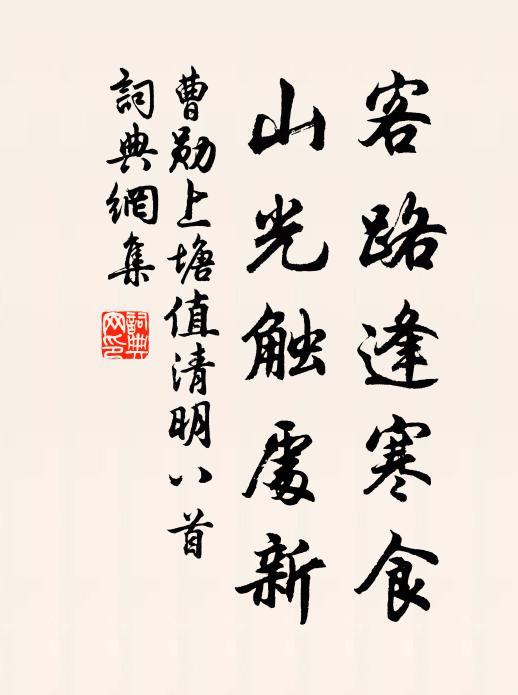 客路逢寒食
山光触處新
曹勛上塘值清明八首
詞典網集
詞典網印